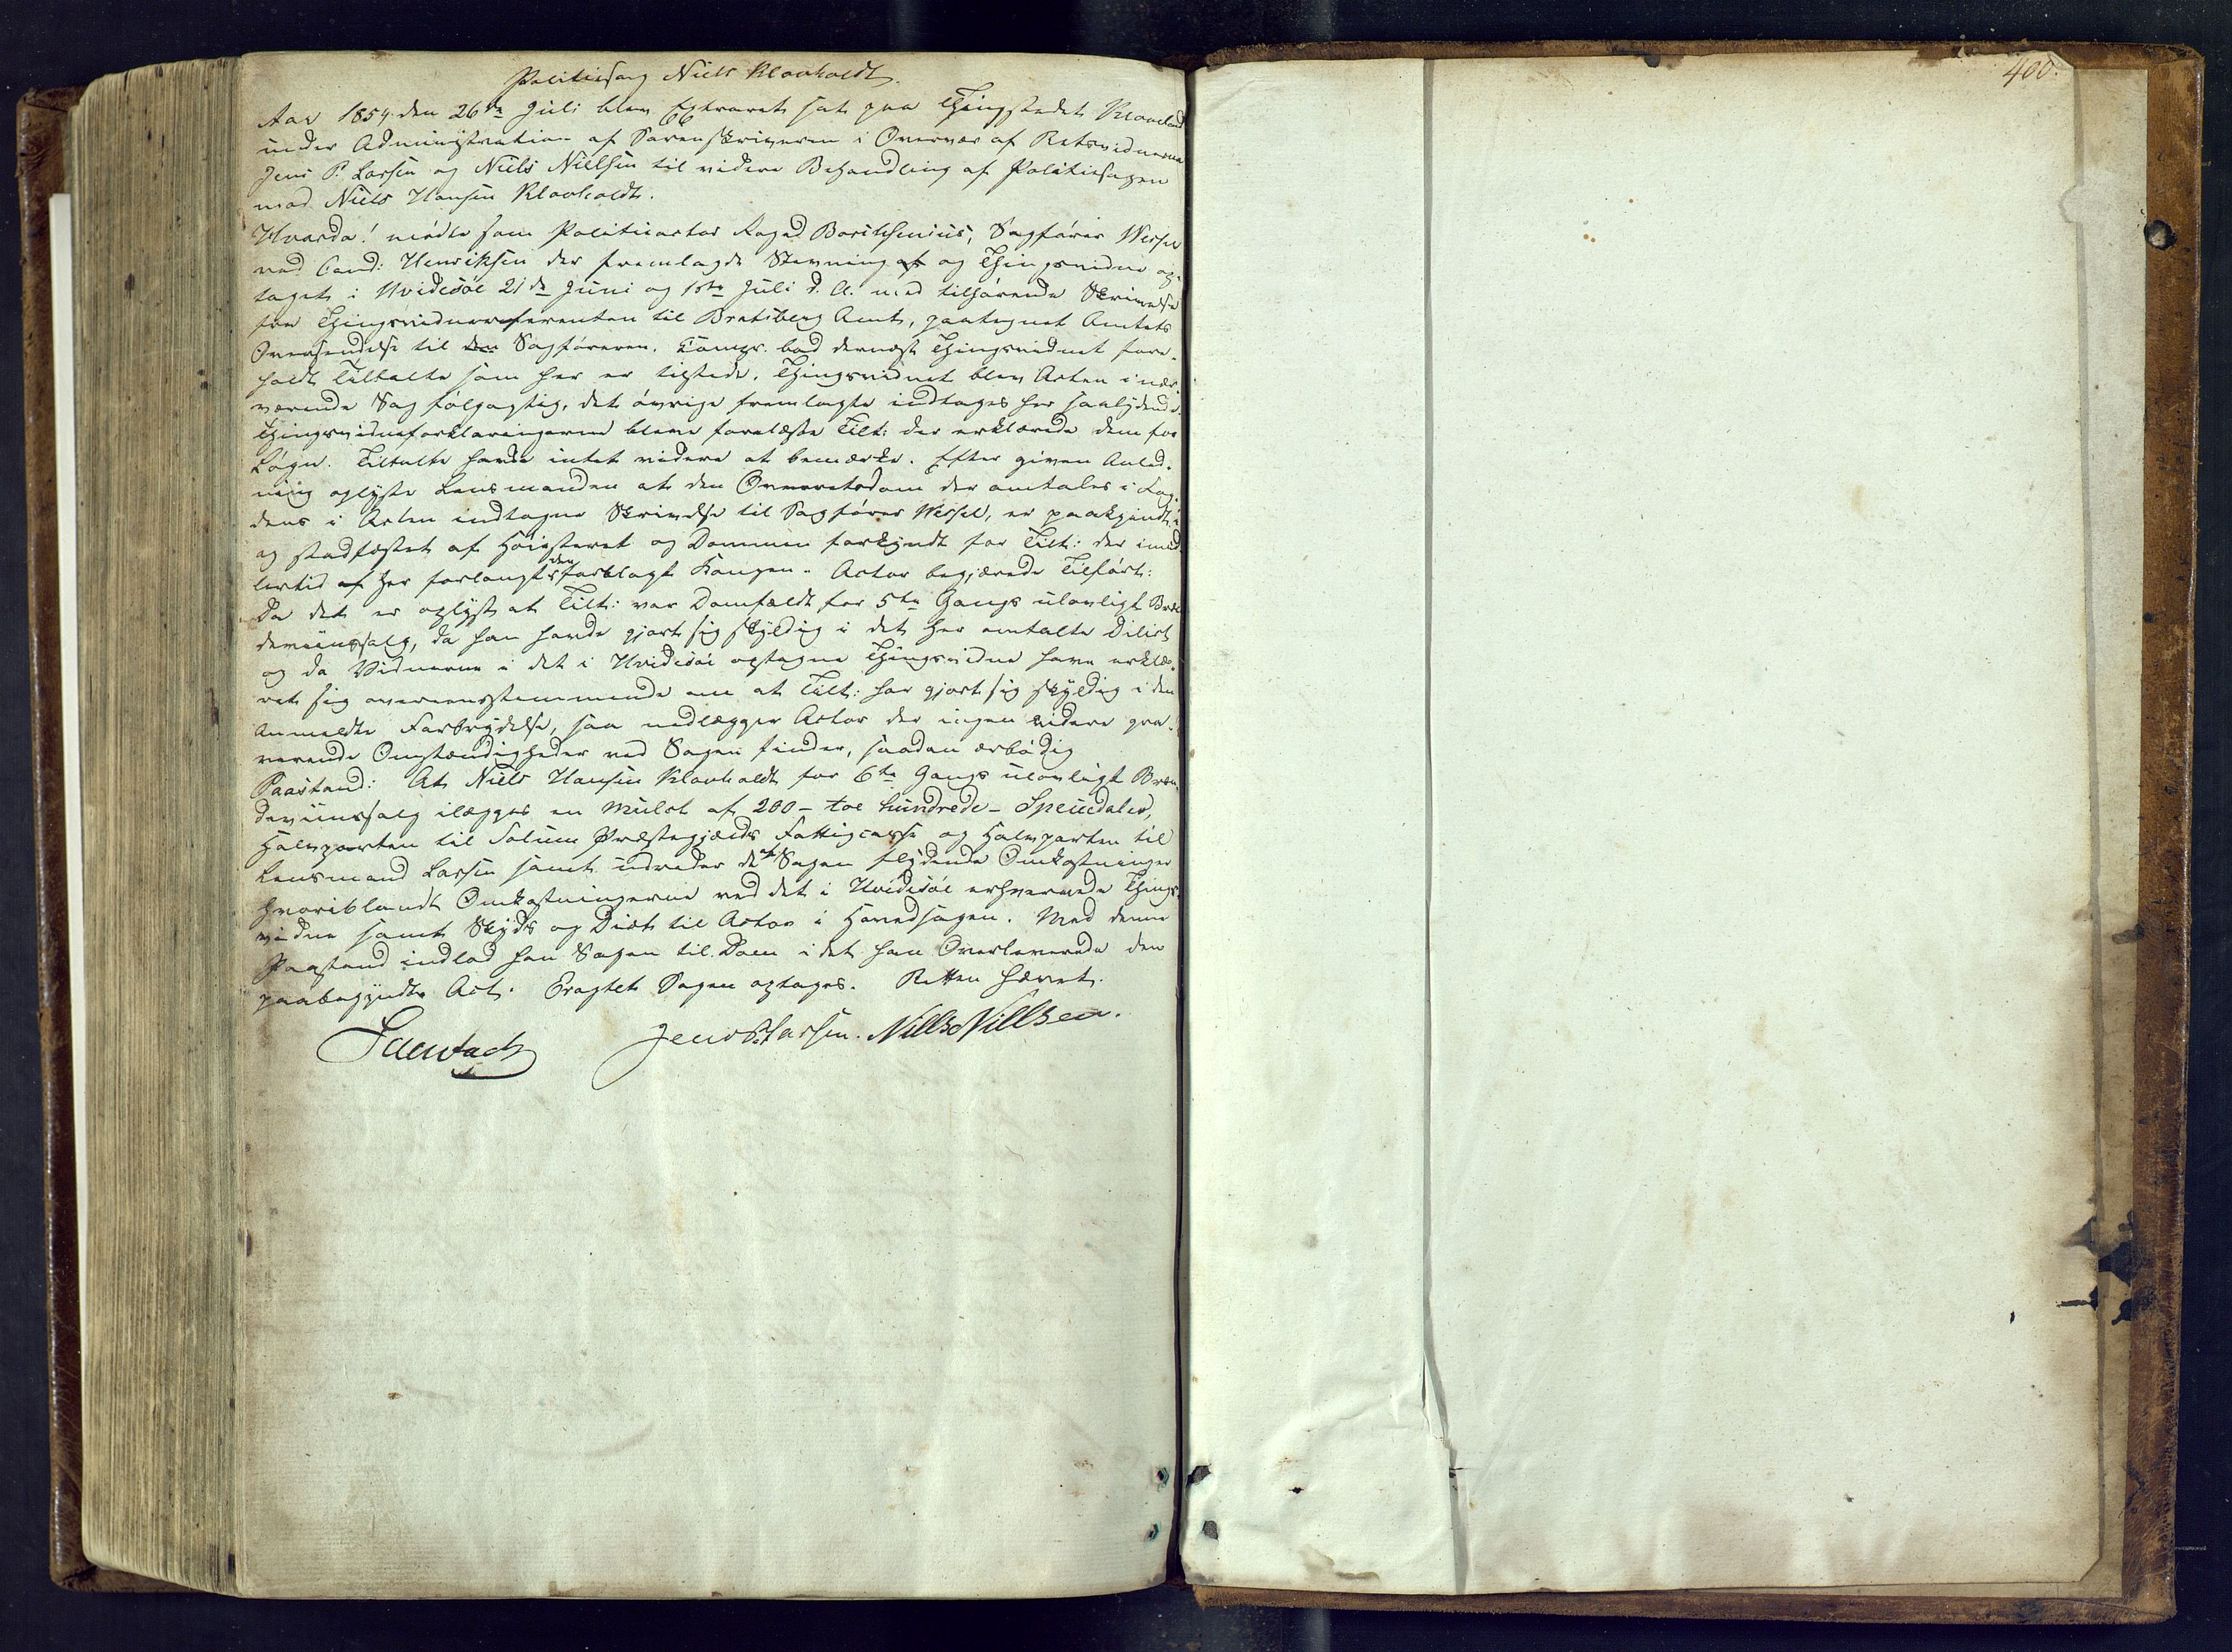 Politiesag Niels Klovholdt.
400.
Aar 1854 den 26de Juli blev Extraret sat paa Thingstedet Klovland
under Administration af Sorenskriveren i Overvær af Retsvidnerne
Jens P. Larsen og Niels Nielsen til videre Behandling af Politiesagen
mod Niels Hansen Klovholdt.
Hvorda! mødte som Politieactor Sagfører Wessel
ved Cand: Henriksen der fremlagde Stevning og Thingsvidne op-
taget i Hvidesøe 21de Juni og 1ste Juli d. A. med tilhørende Skrivelse
fra Thingsvidnereferenten til Bratsberg Amt, paategnet Amtets
Oversendelse til Sagføreren. Comp. bad dernæst Thingsvidnet fore-
holdt Tiltalte som her er tilstede. Thingsvidnet blev Acten i nær-
værende Sag følgagtig, det øvrige fremlagte indtages her saalydende.
Thingsvidneforklaringerne bleve forelæste Tilt: der erklærede dem for
Løgn. Tiltalte havde intet videre at bemærke. Efter given Anled-
ning oplyste Lensmanden at den Overretsdom der omtales i Fog-
dens i Acten indtagne Skrivelse til Sagfører Wessel, er paakjendt
og stadfæstet af Høiesteret og Dommen forkyndt for Tilt: der imid-
lertid har forlangt den forelagt Kongen. Actor begjærede Tilført:
Da det er oplyst at Tilt: var Domfældt for 5te Gangs ulovligt Bræn-
deviinssalg, da han havde gjort sig skyldig i det her omtalte Dilict
og da Vidnerne i det i Hvidesøe optagne Thingsvidne have erklæ-
ret sig overeensstemmende om at Tilt: har gjort sig skyldig i den
anmeldte Forbrydelse, saa nedlægger Actor der ingen videre gra-
verende Omstændigheder ved Sagen finder, saadan ærbødig
Paastand: At Niels Hansen Klovholdt for 6te Gangs ulovligt Bræn-
deviinssalg ilægges en Mulct af 200 - toe hundrede - Speciedaler,
Halvparten til Solum Præstegjælds Fattigcasse og Halvparten til
Lensmand Larsen samt udreder de af Sagen flydende Omkostninger
hvoriblandt Omkostningerne ved det i Hvidesøe erhvervede Things-
vidne samt Skyds og Diæt til Actor i Hovedsagen. Med denne
Paastand indlod han Sagen til Dom i det han Overleverede den
paabegyndte Act. Eragtet Sagen optages. Retten hævet.
Jens P. Larsen. Niels Nillsen.